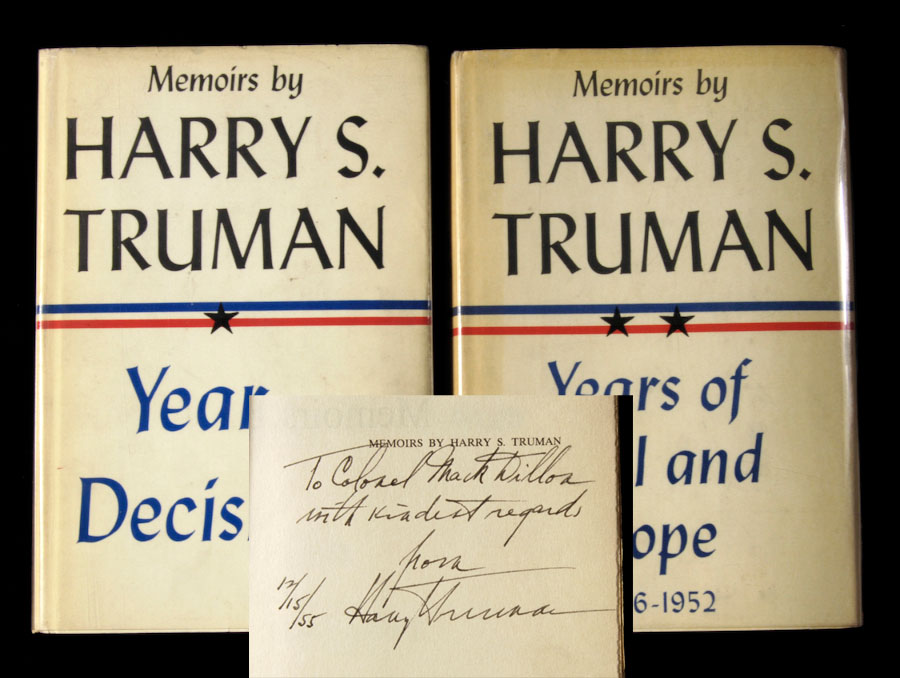 Memoirs by
HARRY S.
TRUMAN
Year
Decis
Memoirs by
HARRY S.
TRUMAN
Years of
l and
ope
6-1952
MEMOIRS BY HARRY S. TRUMAN
To Colonel Mack Dillon
with kindest regards
from
12/15/55 Harry Truman